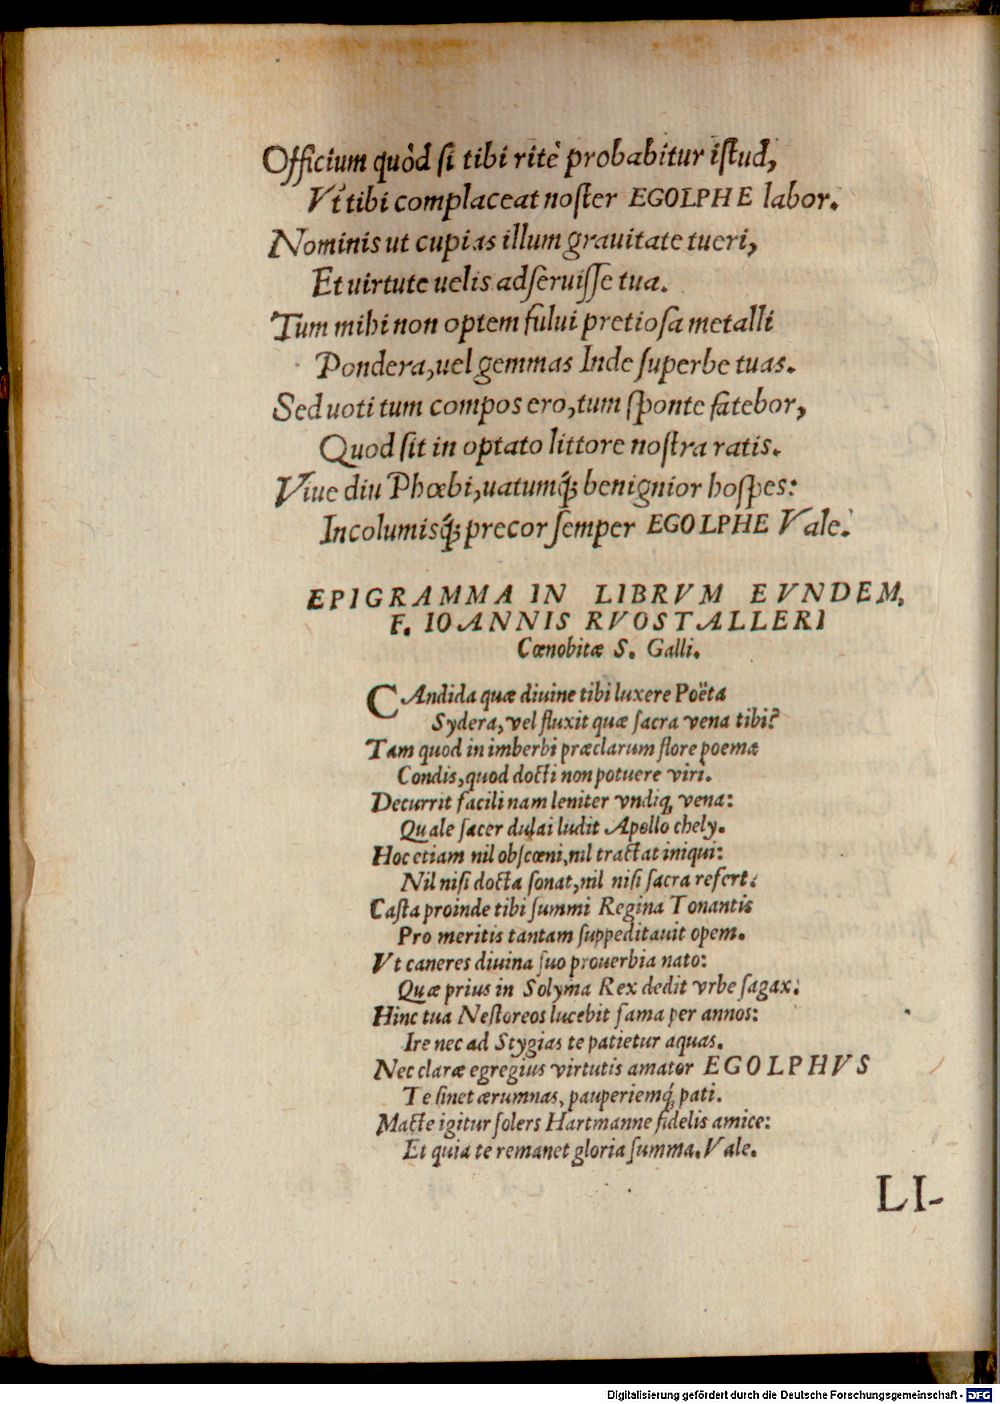 Officium quòd ſi tibi ritè probabitur iſtud,
Vt tibi complaceat noſter EGOLPHE labor.
Nominis ut cupias illum grauitate tueri,
Et uirtute uelis adſeruiſſe tua.
Tum mihi non optem fului pretioſa metalli
Pondera, uel gemmas Inde ſuperbe tuas.
Sed uoti tum compos ero, tum ſponte fatebor,
Quod ſit in optato littore noſtra ratis.
Viue diu Phœbi, uatumq́; benignior hoſpes:
Incolumisq́; precor ſemper EGOLPHE Vale.
EPIGRAMMA IN LIBRVM EVNDEM,
F. IOANNIS RVOSTALLERI
Cœnobitæ S. Galli.
CAndida quæ diuine tibi luxere Poëta
Sydera, vel fluxit quæ ſacra vena tibi?
Tam quod in imberbi præclarum flore poema
Condis, quod docti non potuere viri.
Decurrit facili nam leniter vndiq; vena:
Quale ſacer dulci ludit Apollo chely.
Hoc etiam nil obſcœni, nil tractat iniqui:
Nil niſi docta ſonat, nil niſi ſacra refert:
Caſta proinde tibi ſummi Regina Tonantis
Pro meritis tantam ſuppeditauit opem.
Vt caneres diuina ſuo prouerbia nato:
Quæ prius in Solyma Rex dedit vrbe ſagax:
Hinc tua Neſtoreos lucebit fama per annos:
Ire nec ad Stygias te patietur aquas.
Nec claræ egregius virtutis amator EGOLPHVS
Te ſinet ærumnas, pauperiemq́; pati.
Macte igitur ſolers Hartmanne fidelis amice:
Et quia te remanet gloria ſumma. Vale.
LI-
Digitalisierung gefördert durch die Deutsche Forschungsgemeinschaft - DFG